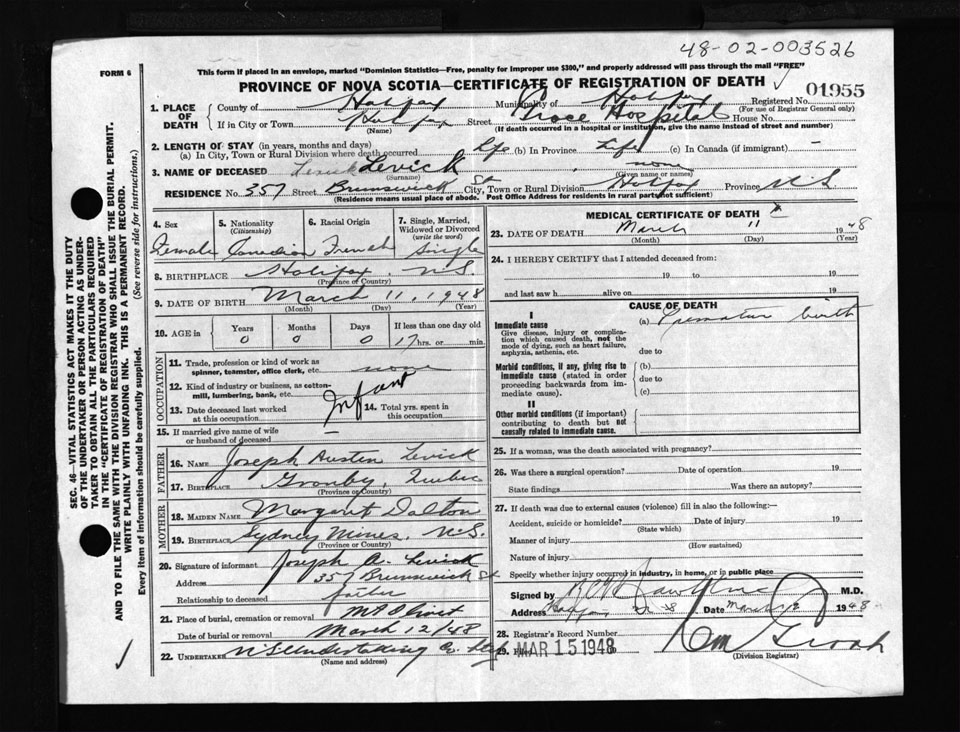 48-02-003526
FORM 6
This form if placed in an envelope, marked "Dominion Statistics—Free, penalty for improper use $300," and properly addressed will pass through the mail "FREE"
PROVINCE OF NOVA SCOTIA—CERTIFICATE OF REGISTRATION OF DEATH
01955
1. PLACE OF DEATH
County of Halifax Municipality of Halifax Registered No.
(For use of Registrar General only)
If in City or Town Halifax Street Grace Hospital House No.
(Name) (If death occurred in a hospital or institution, give the name instead of street and number)
2. LENGTH OF STAY (in years, months and days)
(a) In City, Town or Rural Division where death occurred life (b) In Province Life (c) In Canada (if immigrant) —
3. NAME OF DECEASED Levick none
(Surname) (Given name or names)
RESIDENCE No. 357 Street Brunswick St City, Town or Rural Division Halifax Province N.S
(Residence means usual place of abode. Post Office Address for residents in rural parts not sufficient)
4. Sex
Female
5. Nationality
(Citizenship)
Canadian
6. Racial Origin
French
7. Single, Married, Widowed or Divorced
(write the word)
Single
8. BIRTHPLACE Halifax, N.S.
(Province or Country)
9. DATE OF BIRTH March 11, 1948
(Month) (Day) (Year)
10. AGE in Years Months Days If less than one day old
0 0 0 17 hrs. or min.
OCCUPATION
11. Trade, profession or kind of work as spinner, teamster, office clerk, etc. none
12. Kind of industry or business, as cotton-mill, lumbering, bank, etc.
Infant
13. Date deceased last worked at this occupation
14. Total yrs. spent in this occupation
15. If married give name of wife or husband of deceased —
FATHER
16. NAME Joseph Austin Levick
17. BIRTHPLACE Granby, Quebec
(Province or Country)
MOTHER
18. MAIDEN NAME Margaret Dalton
19. BIRTHPLACE Sydney Mines, N.S.
(Province or Country)
20. Signature of informant Joseph A. Levick
Address 357 Brunswick St
Relationship to deceased father
21. Place of burial, cremation or removal Mt Olivet
Date of burial or removal March 12/48
22. UNDERTAKER N S Undertaking Co.
(Name and address)
MEDICAL CERTIFICATE OF DEATH
23. DATE OF DEATH March 11 1948
(Month) (Day) (Year)
24. I HEREBY CERTIFY that I attended deceased from:
19 to 19
and last saw h alive on 19
CAUSE OF DEATH
I
Immediate cause
Give disease, injury or complication which caused death, not the mode of dying, such as heart failure, asphyxia, asthenia, etc.
(a) Premature birth
due to
Morbid conditions, if any, giving rise to immediate cause (stated in order proceeding backwards from immediate cause).
(b)
due to
(c)
II
Other morbid conditions (if important) contributing to death but not causally related to immediate cause.
25. If a woman, was the death associated with pregnancy?
26. Was there a surgical operation? Date of operation 19
State findings Was there an autopsy?
27. If death was due to external causes (violence) fill in also the following:—
Accident, suicide or homicide? Date of injury 19
(State which)
Manner of injury
(How sustained)
Nature of injury
Specify whether injury occurred in industry, in home, or in public place
Signed by M.D.
Address Date March 1948
28. Registrar's Record Number
29.
MAR 15 1948
(Division Registrar)
SEC. 46—VITAL STATISTICS ACT MAKES IT THE DUTY
OF THE UNDERTAKER OR PERSON ACTING AS UNDER-
TAKER TO OBTAIN ALL THE PARTICULARS REQUIRED
IN THE "CERTIFICATE OF REGISTRATION OF DEATH"
AND TO FILE THE SAME WITH THE DIVISION REGISTRAR WHO SHALL ISSUE THE BURIAL PERMIT.
WRITE PLAINLY WITH UNFADING INK. THIS IS A PERMANENT RECORD.
Every item of information should be carefully supplied. (See reverse side for instructions.)